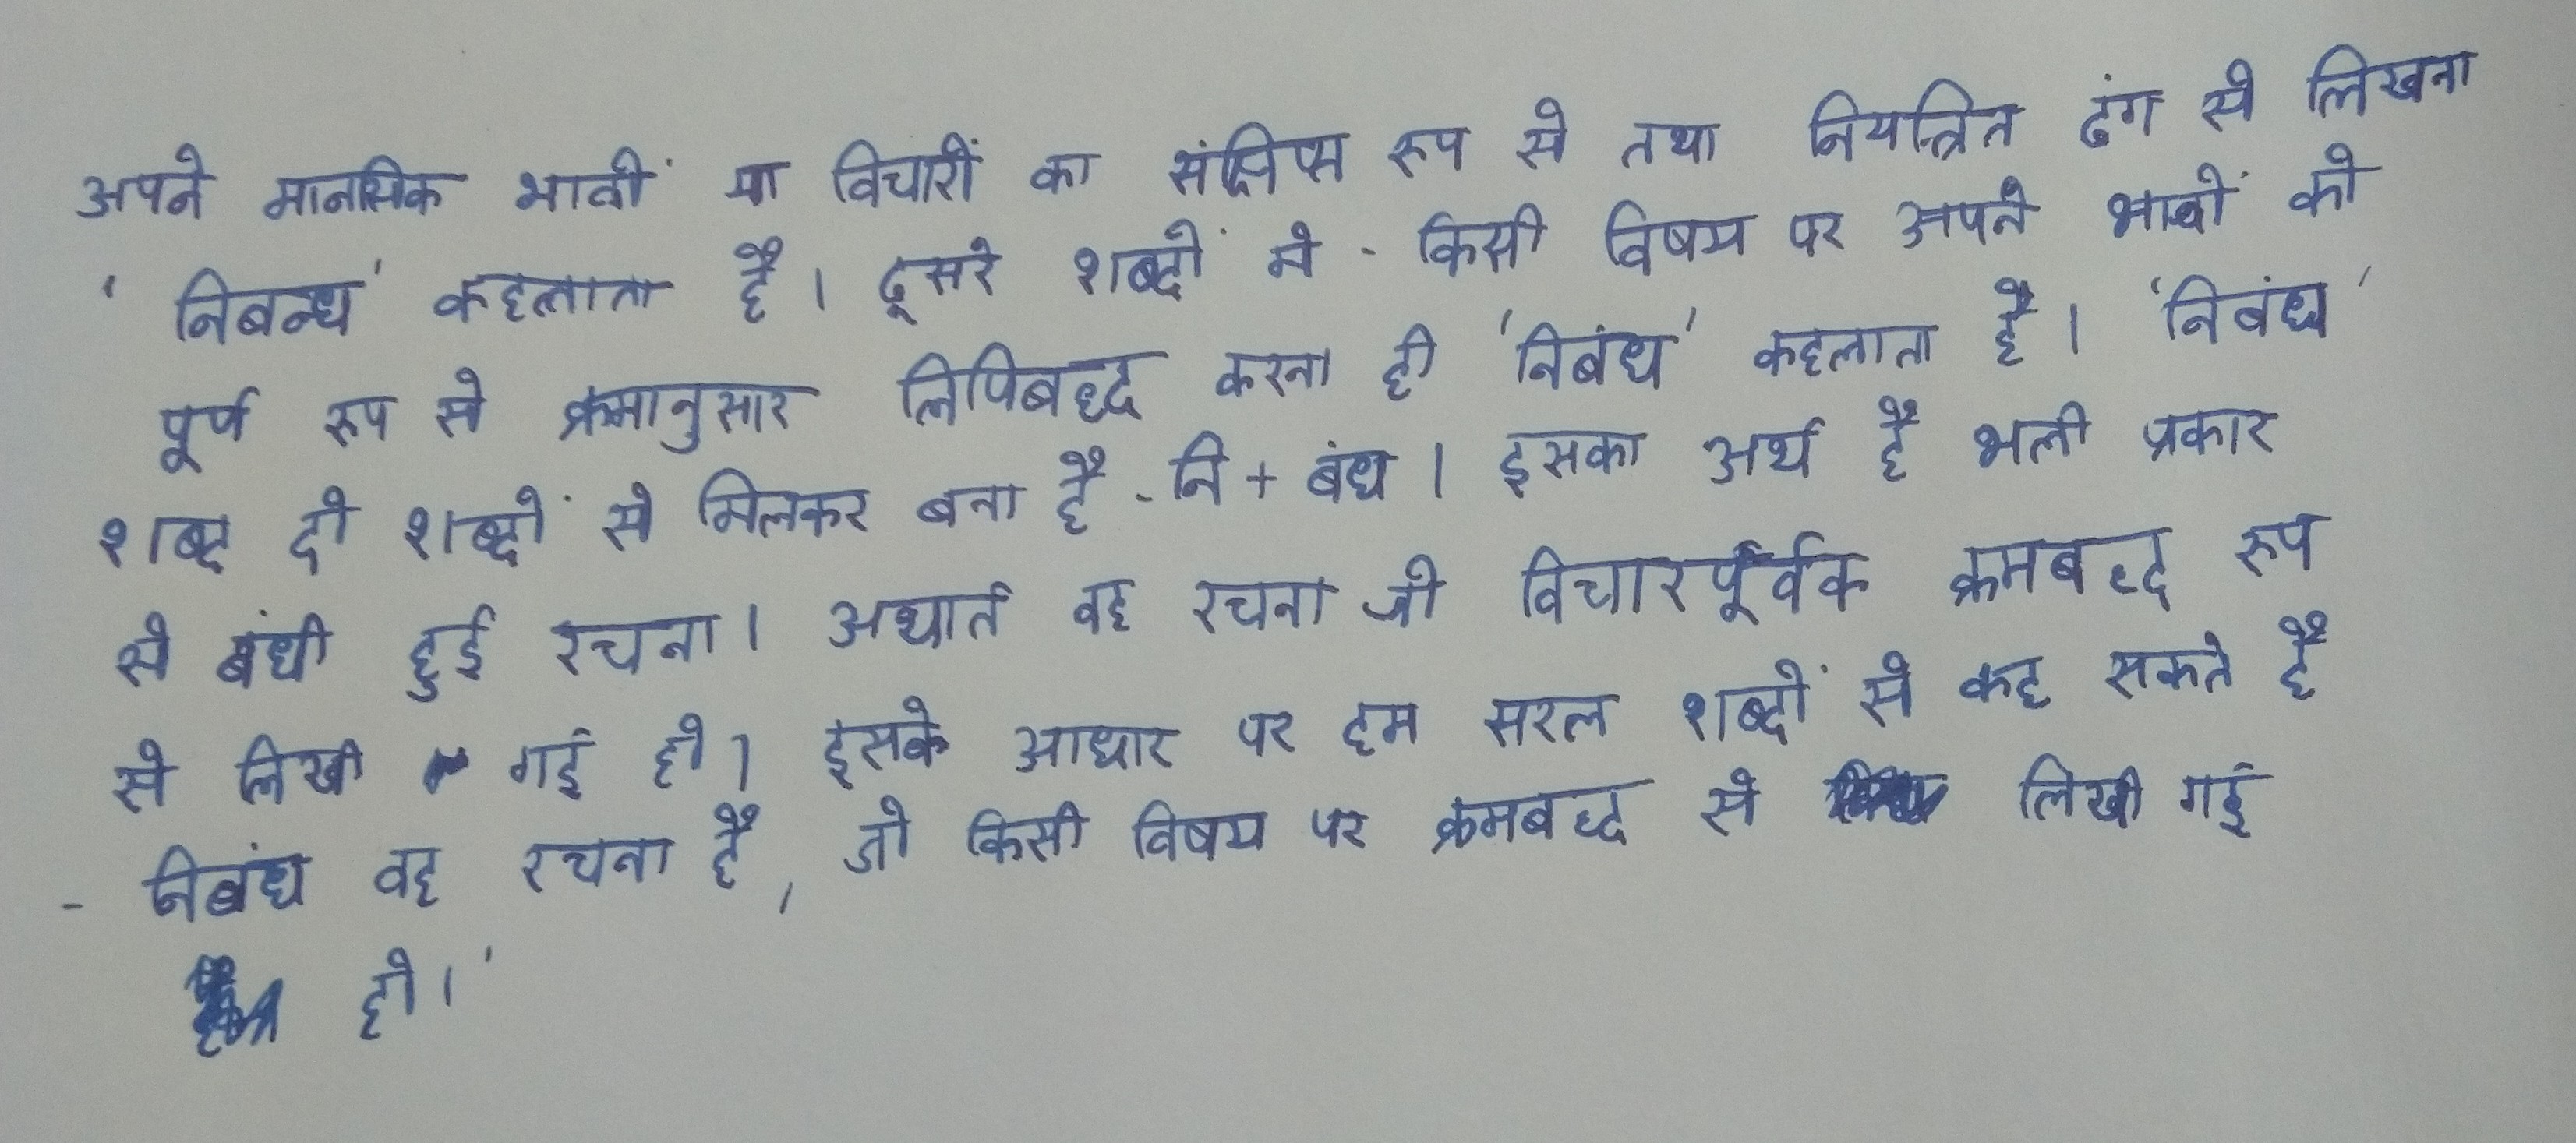 अपने मानसिक भावों या विचारों का संक्षिप्त रूप से तथा नियन्त्रित ढंग से लिखना
' निबन्ध' कहलाता है। दूसरे शब्दों मे - किसी विषय पर अपने भावों को
पूर्ण रूप से क्रमानुसार लिपिबद्ध करना ही 'निबंध' कहलाता है। 'निबंध'
शब्द दो शब्दों से मिलकर बना है - नि + बंध। इसका अर्थ है भली प्रकार
से बंधी हुई रचना। अथार्त वह रचना जो विचारपूर्वक क्रमबद्ध रूप
से लिखी गई हो। इसके आधार पर हम सरल शब्दों से कह सकते है
- निबंध वह रचना है, जो किसी विषय पर क्रमबद्ध से लिखी गई
हो।'